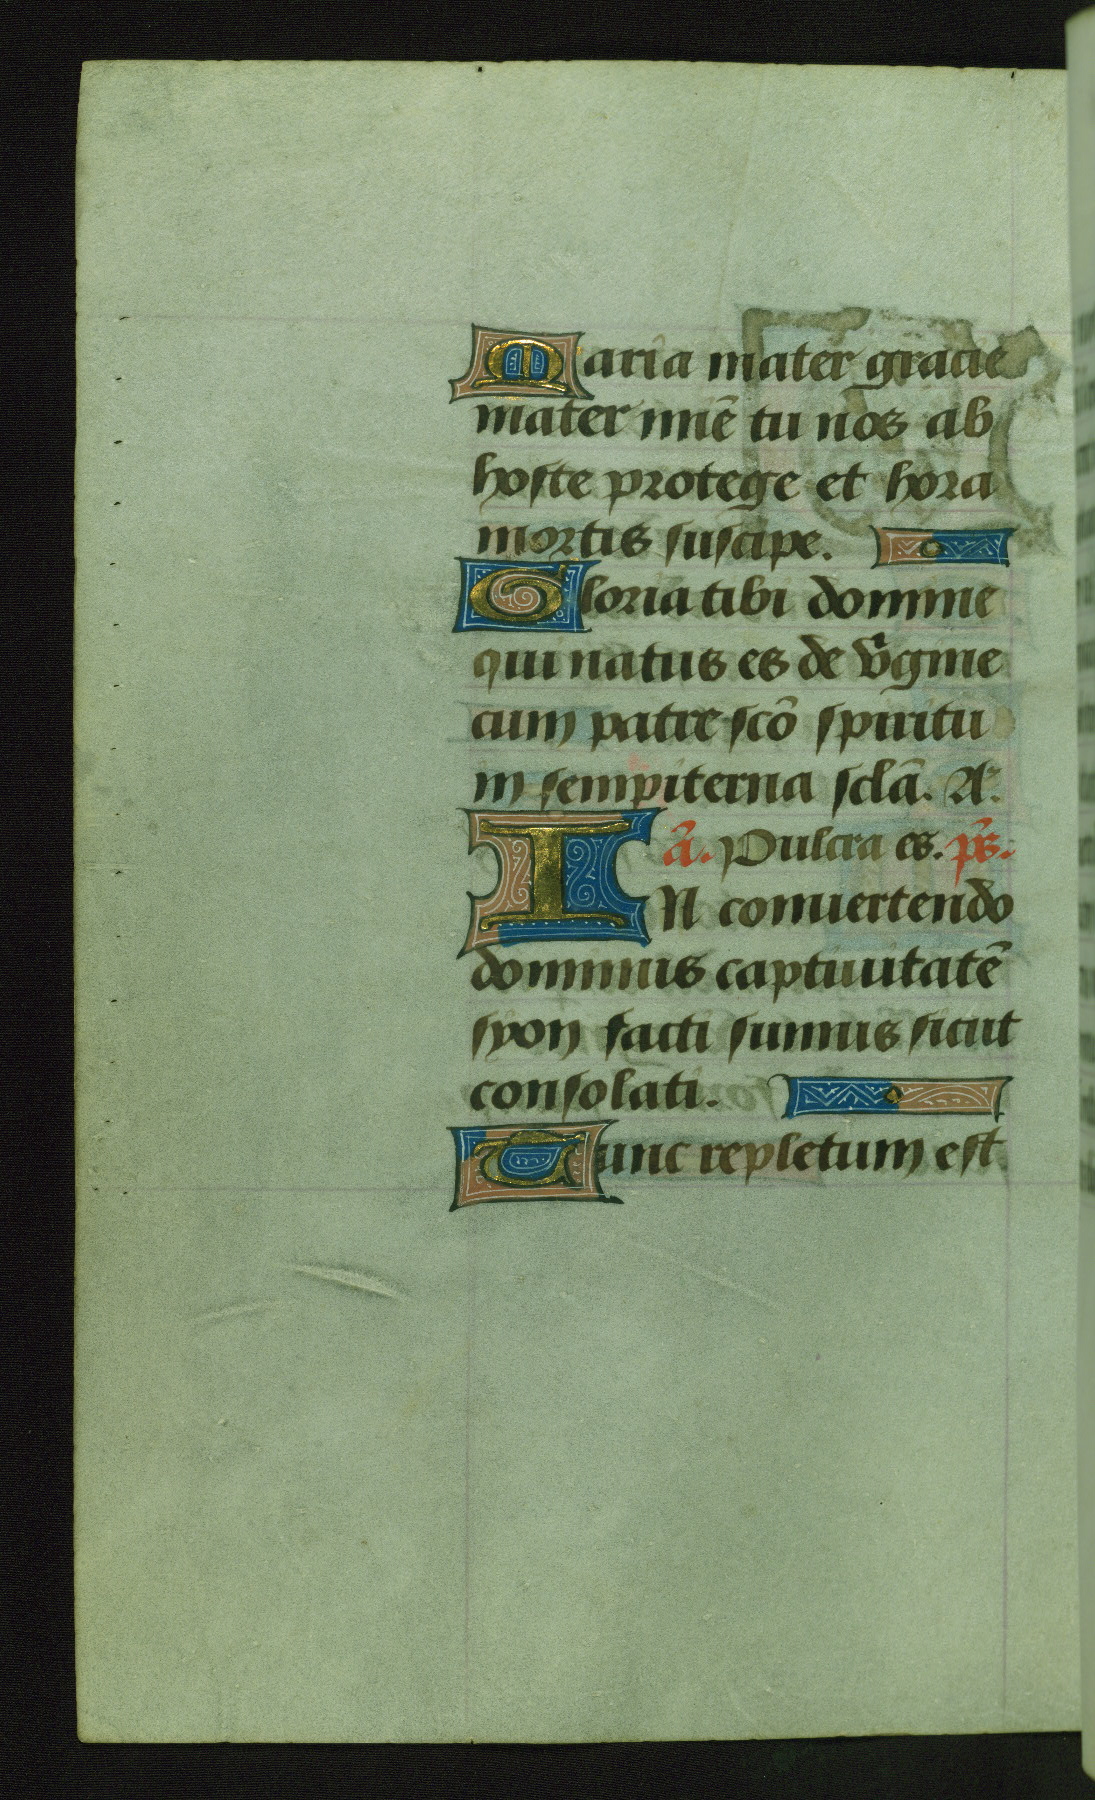 Maria mater gracie
mater mie tu nos ab
hoste protege et hora
mortis suscipe.
Gloria tibi domine
qui natus es de v̄gine
cum patre scō spiritu
in sempiterna sclā. Ā.
ā. Pulcra es. p̄s.
IN conuertendo
dominus captiuitatē
syon facti sumus sicut
consolati.
Tunc repletum est